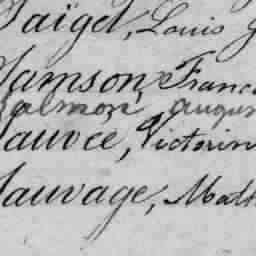 Saïget, Louis
Samson, Franc
Salmon, Augus
Sauvée, Victorin
Sauvage, Math